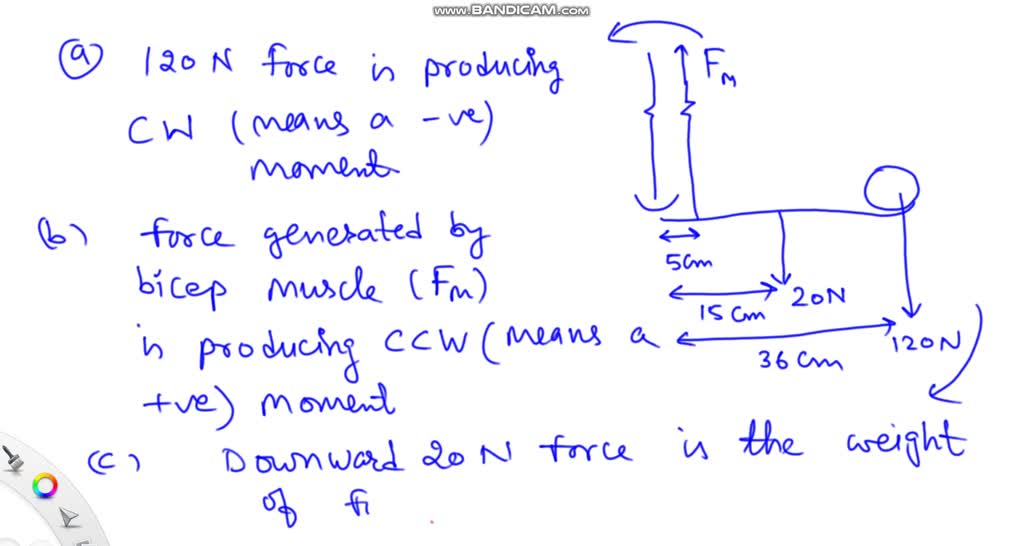 www.BANDICAM.com
(a) 120 N force is producing
CW (means a -ve)
moment
(b) force generated by
bicep muscle (FM)
is producing CCW (means a
+ve) moment
(c) Downward 20 N force is the weight
of f
FM
5cm
15 cm
20N
36 cm
120N